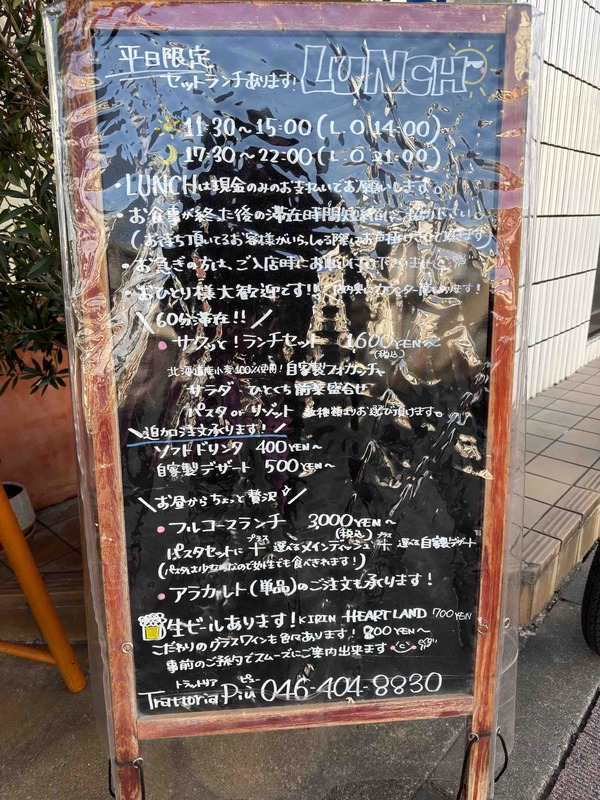 平日限定
セットランチあります!
LUNCH
11:30〜15:00(L.O 14:00)
17:30〜22:00(L.O 21:00)
・LUNCHは現金のみのお支払いでお願いします。
・お食事が終った後の滞在時間
(お待ち頂いてるお客様がいらっしゃる際はお声掛け
・お急ぎの方は、ご入店時にお
・おひとり様大歓迎です!!
\60分滞在!!/
・サクッと!ランチセット 1,600YEN〜
(税込)
北海道産小麦100%使用!自家製フォカッチャ
サラダ・ひとくち前菜盛合せ
パスタ or リゾット 数種類よりお選び頂けます。
\追加注文承ります!/
ソフトドリンク 400YEN〜
自家製デザート 500YEN〜
\お昼からちょっと贅沢/
・フルコースランチ 3,000YEN〜
(税込)
パスタセットに+プラス 選べるメインディッシュ+プラス 選べる自家製デザート
(パスタは少なめなので女性でも食べきれます!)
・アラカルト(単品)のご注文も承ります!
生ビールあります!KIRIN HEARTLAND 700YEN
こだわりのグラスワインも色々あります!800YEN〜
事前のご予約でスムーズにご案内出来ます
トラットリア ピュー
Trattoria Più 046-404-8830